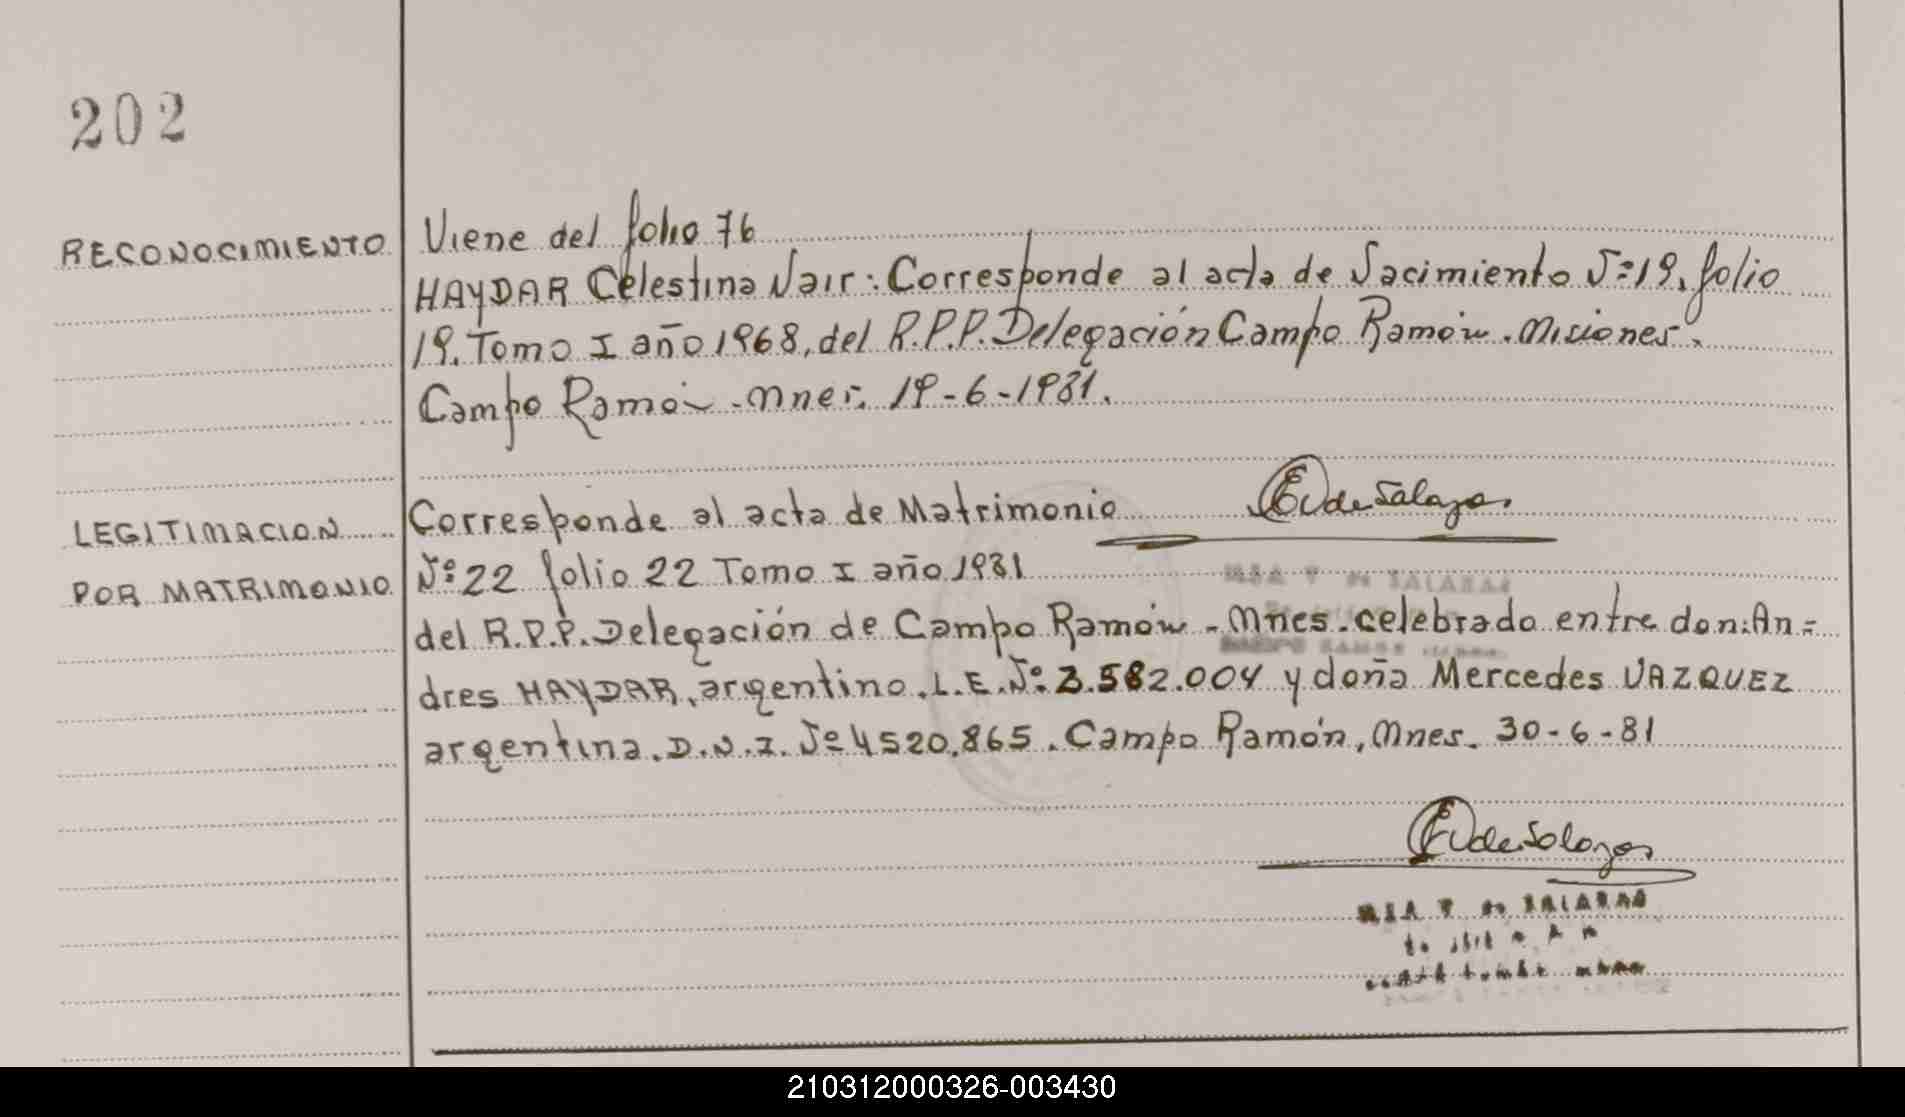 202
RECONOCIMIENTO
Viene del folio 76
HAYDAR Celestina Nair: Corresponde al acta de Nacimiento Nº 19, folio
19. Tomo I año 1968, del R.P.P. Delegación Campo Ramón. Misiones.
Campo Ramón - Mnes. 19-6-1981.
LEGITIMACION
POR MATRIMONIO
Corresponde al acta de Matrimonio
Nº 22 folio 22 Tomo I año 1981
del R.P.P. Delegación de Campo Ramón - Mnes. celebrado entre don: An=
dres HAYDAR, argentino. L.E. Nº 3.582.004 y doña Mercedes VAZQUEZ
argentina. D.N.I. Nº 4520.865. Campo Ramón, Mnes. 30-6-81
210312000326-003430